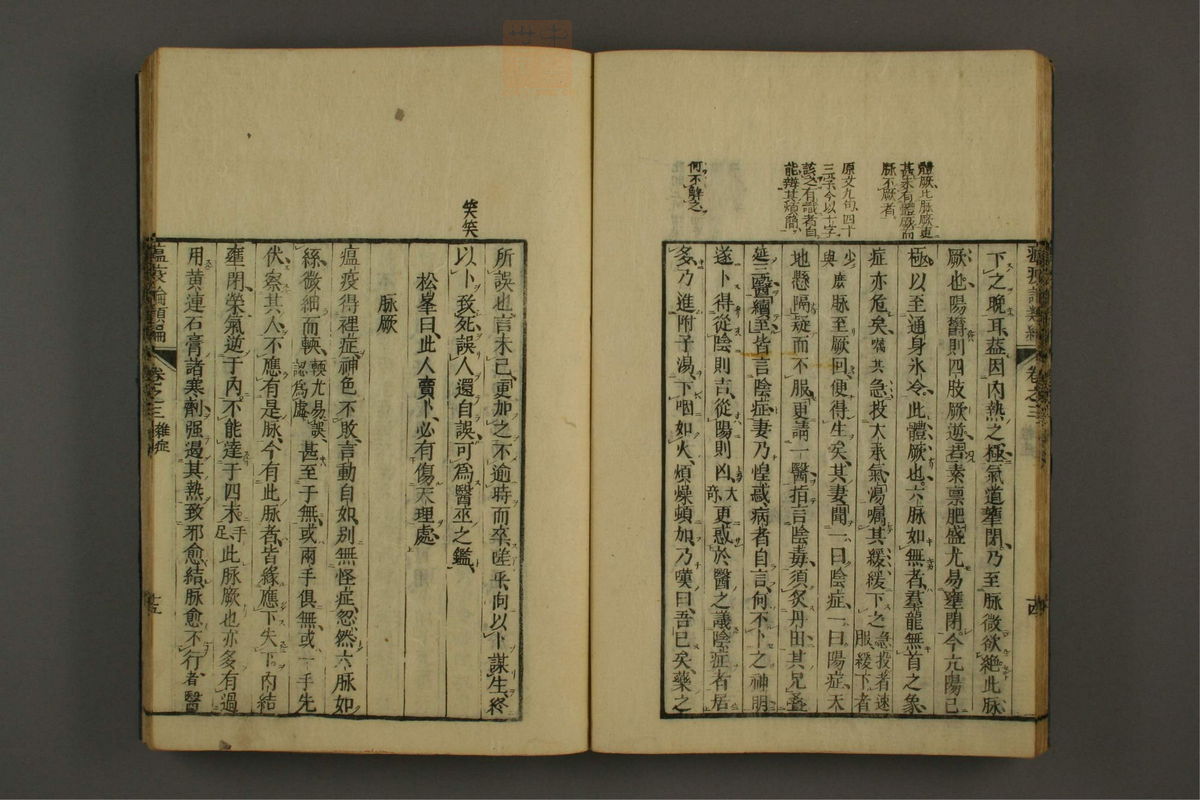 瘟疫論類編 卷之三 雜症 十四
體厥比脉厥更
甚未有體厥而
脉不厥者
原文九句四十
三字今以十字
該之有識者自
能辨其煩簡
何不辭之
下之晚耳蓋因内熱之極氣道壅閉乃至脉微欲絶此脉
厥也陽鬱則四肢厥逆若素禀肥盛尤易壅閉今亢陽已
極以至通身氷冷此體厥也六脉如無者羣龍無首之象
症亦危矣囑其急投大承氣湯囑其緩緩下之急投者速服緩下者
少與麽脉至厥回便得生矣其妻聞一曰陰症一曰陽症天
地懸隔疑而不服更請一醫指言陰毒須灸丹田其兄叠
延三醫續至皆言陰症妻乃惶惑病者自言何不卜之神明
遂卜得從陰則吉從陽則凶大奇更惑於醫之議陰症者居
多乃進附子湯下咽如火煩燥頓加乃嘆曰吾已矣藥之
笑笑
所誤也言未已更加之不逾時而卒嗟乎向以卜謀生終
以卜致死誤人還自誤可爲醫巫之鑑
松峯曰此人賣卜必有傷天理處
脉厥
瘟疫得裡症神色不敗言動自如别無怪症忽然六脉如
絲微細而輭輭尤易誤認爲虚甚至于無或兩手俱無或一手先
伏察其人不應有是脉今有此脉者皆緣應下失下内結
壅閉榮氣逆于内不能達于四末手足此脉厥也亦多有過
用黄連石膏諸寒劑强遏其熱致邪愈結脉愈不行者醫
瘟疫論類編 卷之三 雜症 十五